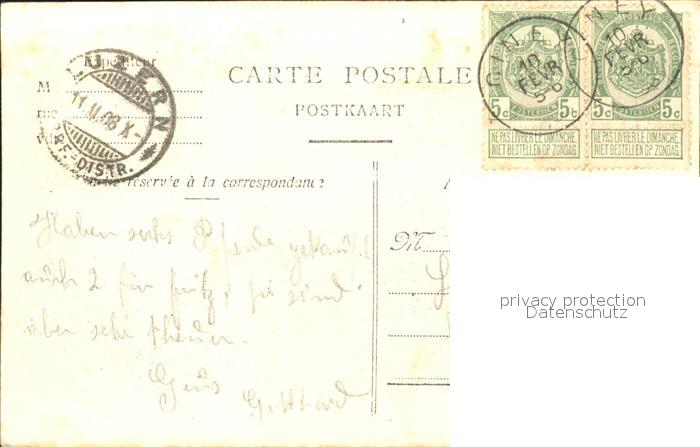 CINEY
10
FEVR
5-6
CINEY
10
FEVR
5-6
POSTES
POSTERIJEN
5c 5c
5c 5c
NE PAS LIVRER LE DIMANCHE
NIET BESTELLEN OP ZONDAG
NE PAS LIVRER LE DIMANCHE
NIET BESTELLEN OP ZONDAG
Expéditeur
M
rue
BERN
11.II.08.X-
BRF.-DISTR.
CARTE POSTALE
POSTKAART
réservée à la correspondance
M
Haben sechs Pferde gekauft
auch 2 für Fritz, sie sind
aber sehr theuer.
Gruss
Gotthard
privacy protection
Datenschutz